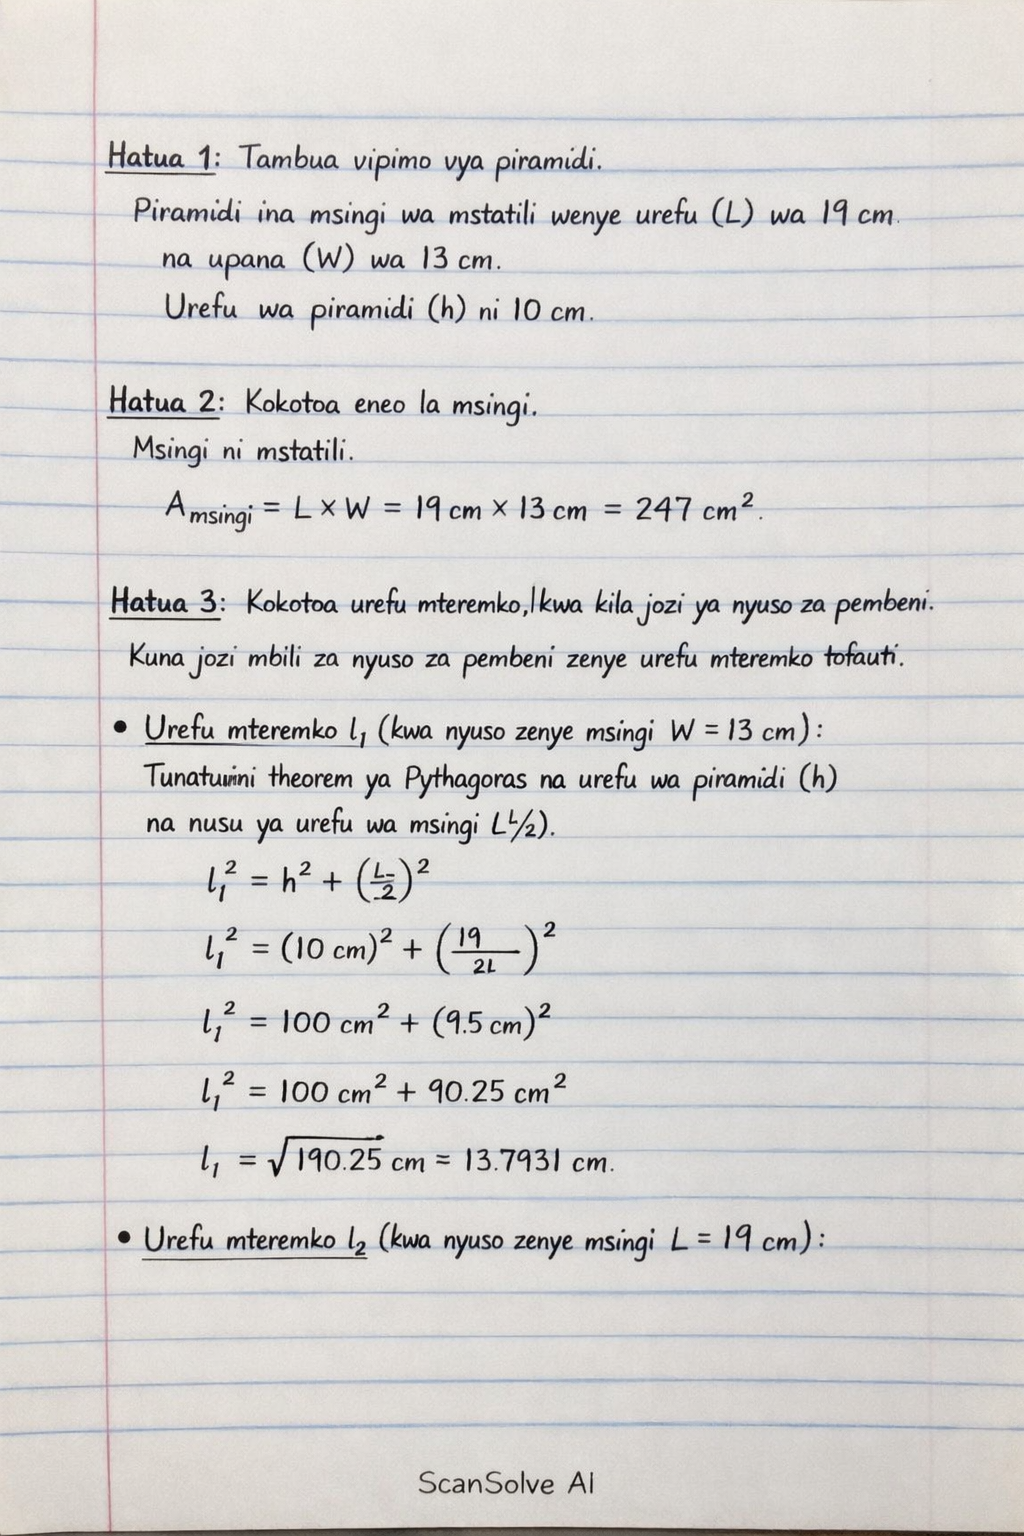 Hatua 1: Tambua vipimo vya piramidi.
Piramidi ina msingi wa mstatili wenye urefu (L) wa 19 cm.
na upana (W) wa 13 cm.
Urefu wa piramidi (h) ni 10 cm.
Hatua 2: Kokotoa eneo la msingi.
Msingi ni mstatili.
A msingi = L × W = 19 cm × 13 cm = 247 cm².
Hatua 3: Kokotoa urefu mteremko, l kwa kila jozi ya nyuso za pembeni.
Kuna jozi mbili za nyuso za pembeni zenye urefu mteremko tofauti.
• Urefu mteremko l₁ (kwa nyuso zenye msingi W = 13 cm):
theorem ya Pythagoras na urefu wa piramidi (h)
na nusu ya urefu wa msingi L^L/2).
l₁² = h² + (L/2)²
l₁² = (10 cm)² + (19/2L)²
l₁² = 100 cm² + (9.5 cm)²
l₁² = 100 cm² + 90.25 cm²
l₁ = √190.25 cm = 13.7931 cm.
• Urefu mteremko l₂ (kwa nyuso zenye msingi L = 19 cm):
ScanSolve AI